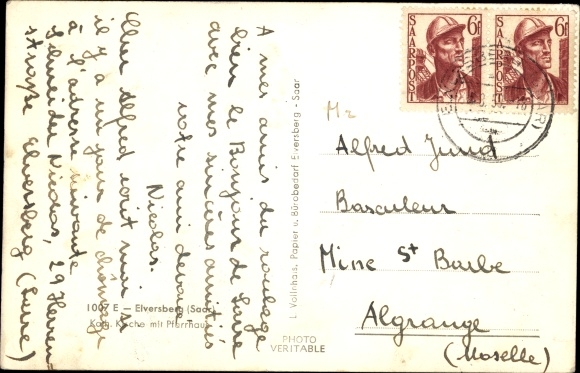 A mes amis du roulage
bien le Bonjour de Sarre
avec mes sincères amitiés
votre ami dévoué
Nicolas.
Cher Alfred, écrit moi si
il y a un jour de chômage
à l'adresse suivante
Schneider Nicolas, 29 Herren-
strasse Elversberg (Sarre)
1007 E – Elversberg (Saar)
Kath. Kirche mit Pfarrhaus
L. Vollnhals, Papier u. Bürobedarf Elversberg - Saar
PHOTO
VERITABLE
SAARPOST
6F
SAARPOST
6F
Mr
Alfred Jund
Basculeur
Mine St Barbe
Algrange
(Moselle)